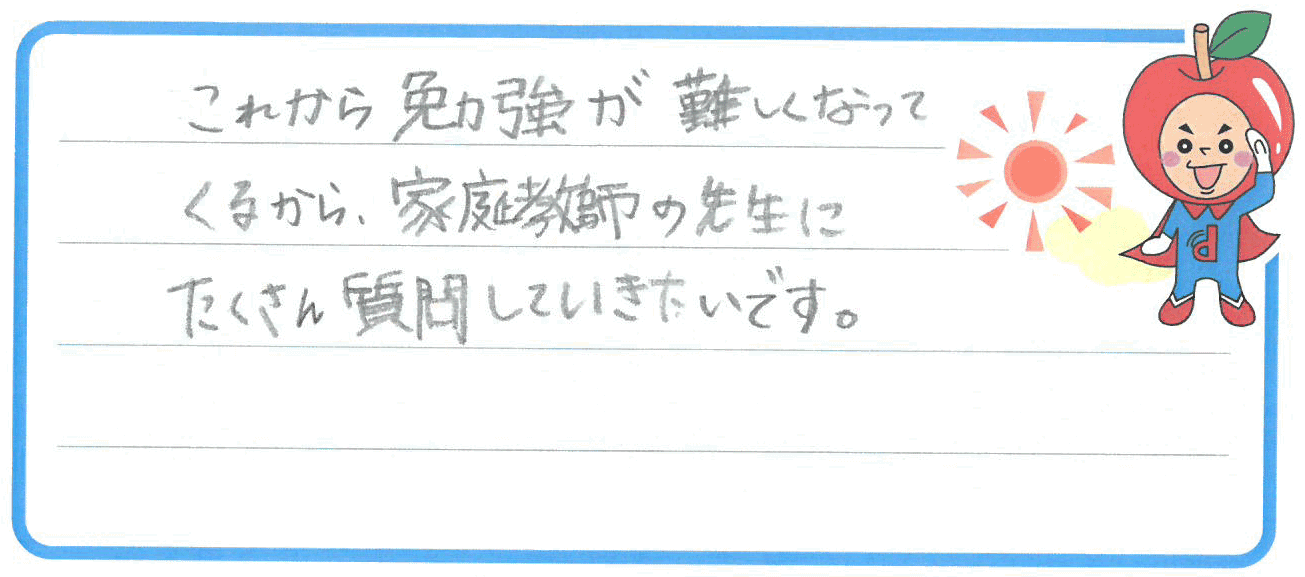 これから勉強が難しくなって
くるから、家庭教師の先生に
たくさん質問していきたいです。
d